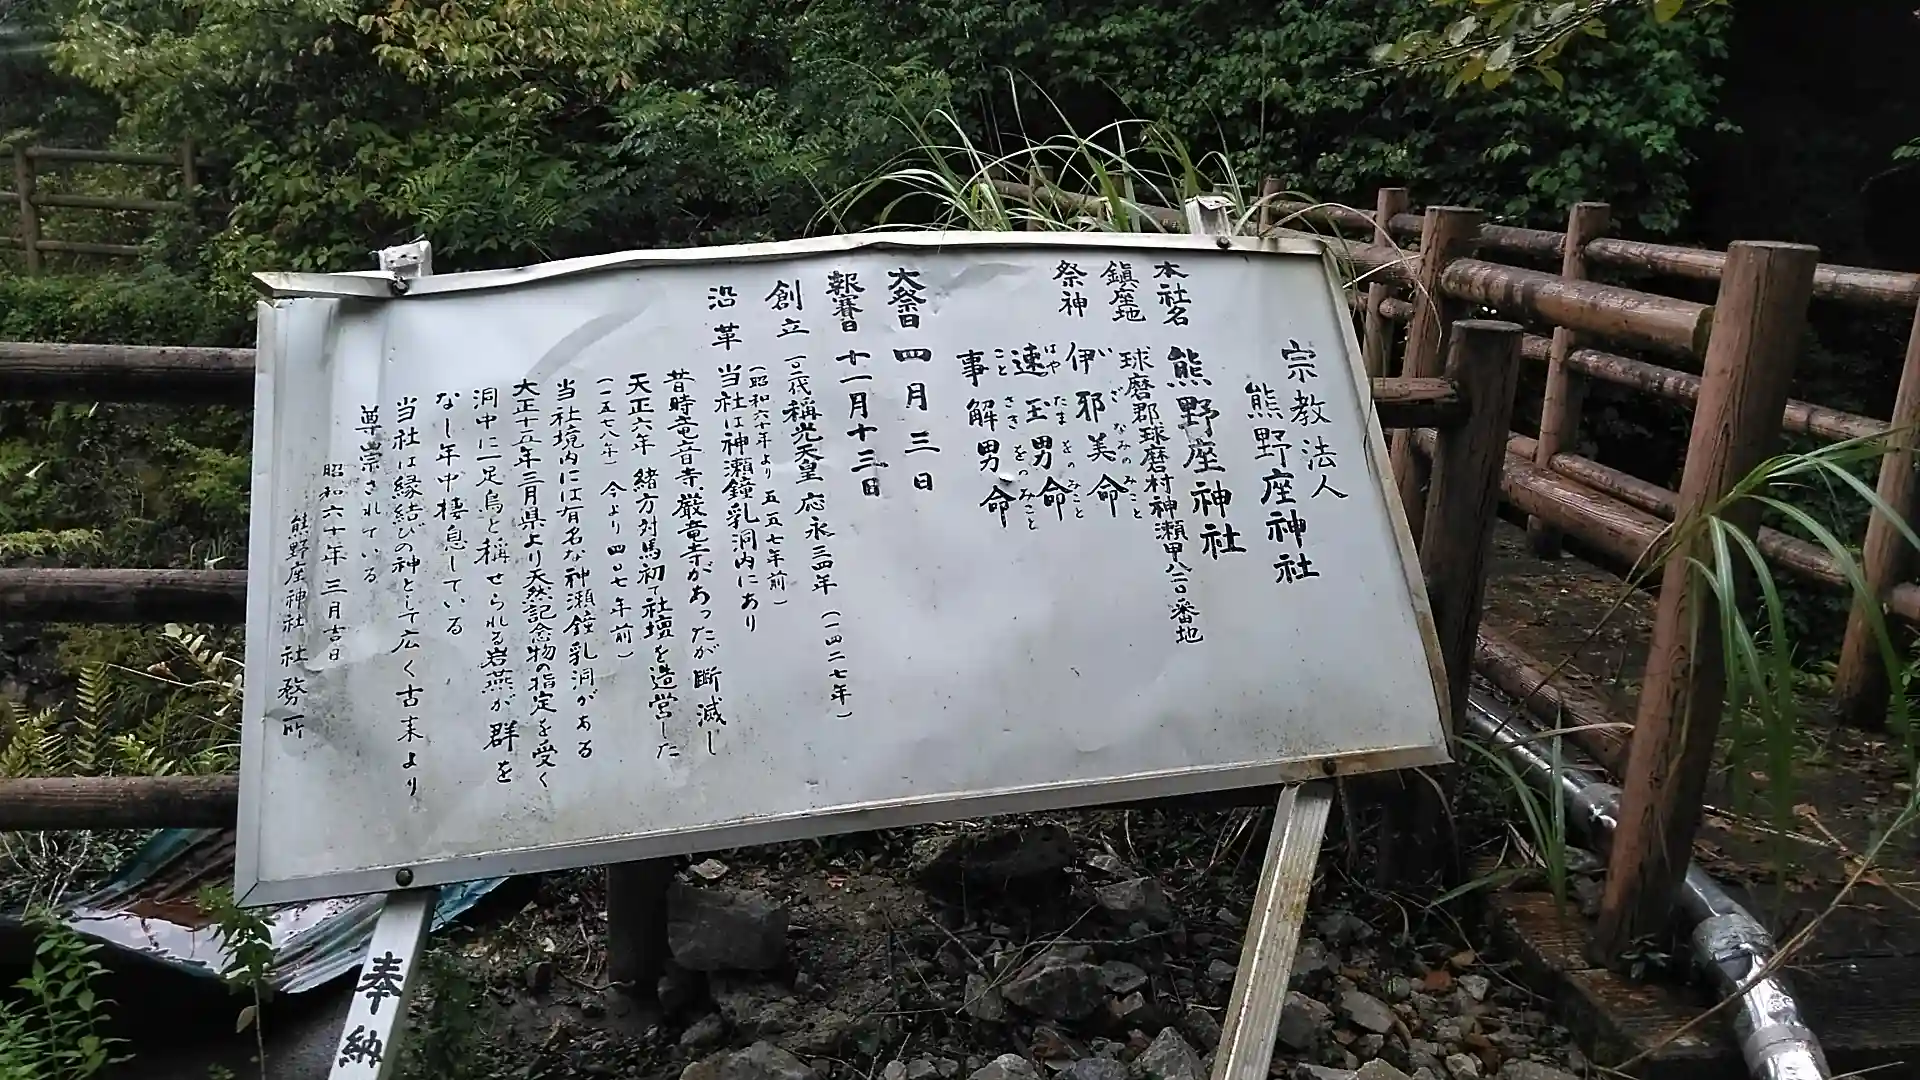 宗教法人
熊野座神社
本社名 熊野座神社
鎮座地 球磨郡球磨村神瀬甲八二〇番地
祭神 伊邪美命
いざなみのみこと
速玉男命
はやたまをのみこと
事解男命
ことさきをのみこと
大祭日 四月三日
報賽日 十一月十三日
創立 一〇一代稱光天皇 応永三四年(一四二七年)
(昭和六十年より五五七年前)
沿革 当社は神瀬鐘乳洞内にあり
昔時竜音寺、厳竜寺があったが断滅し
天正六年 緒方対馬初て社壇を造営した
(一五七八年)今より四〇七年前)
当社境内には有名な神瀬鐘乳洞がある
大正十五年三月県より天然記念物の指定を受く
洞中に一足鳥と稱せられる岩燕が群を
なし年中棲息している
当社は縁結びの神として広く古末より
尊崇されている
昭和六十年三月吉日
熊野座神社社務所
奉納